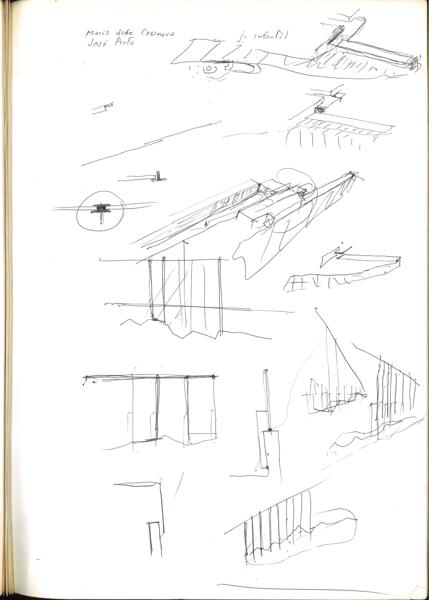 Maria João Casanova
José Preto
j. infantil